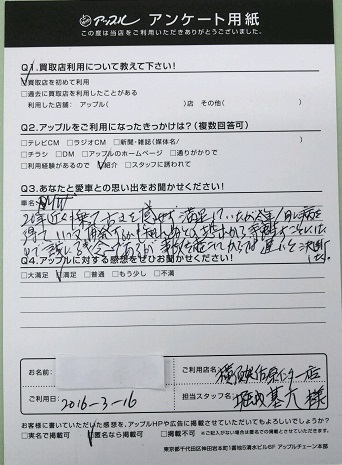 アップル アンケート用紙
この度は当店をご利用いただきありがとうございました。
Q1.買取店利用について教えて下さい!
☑買取店を初めて利用
□過去に買取店を利用したことがある
利用した店舗: アップル( )店 その他( )
Q2.アップルをご利用になったきっかけは?(複数回答可)
□テレビCM □ラジオCM □新聞・雑誌(媒体名/ )
□チラシ □DM □アップルのホームページ □通りがかりで
□利用経験があるので ☑紹介 □スタッフに誘われて
Q3.あなたと愛車との思い出をお聞かせください!
車名
20年近く
満足していたが今年1月に病を
得て
Q4.アップルに対する感想をぜひお聞かせください!
□大満足 ☑満足 □普通 □もう少し □不満
お名前:
ご利用店名:
横須賀佐原インター店
ご利用日: 2016-3-16
担当スタッフ名: 様
お客様に書いていただいた感想を、アップルHPや広告に掲載させていただいてもよろしいでしょうか?
□実名で掲載可 ☑匿名なら掲載可 □掲載不可 ※ご記入がない場合は匿名での掲載とさせていただきます。
東京都千代田区神田岩本町1番地5清水ビル6F アップルチェーン本部